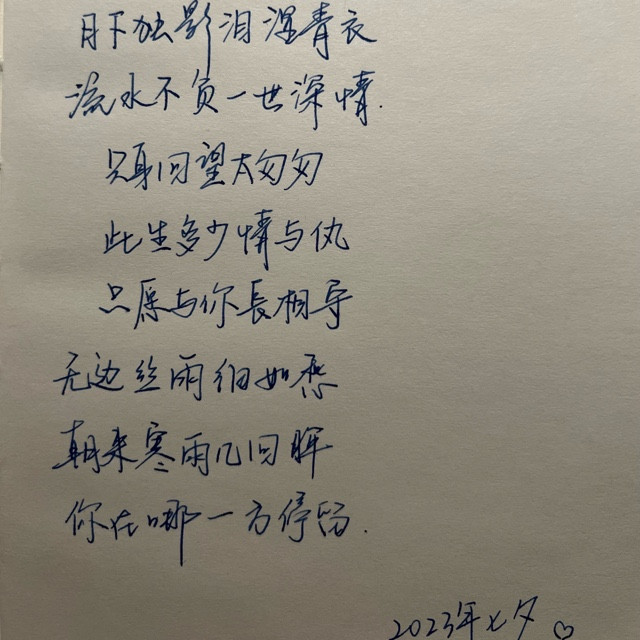 月下独影泪湿青衣
流水不负一世深情.
只身回望太匆匆
此生多少情与仇
只愿与你長相守
无边丝雨细如愁
朝来寒雨几回眸
你在哪一方停留.
2023年七夕♡